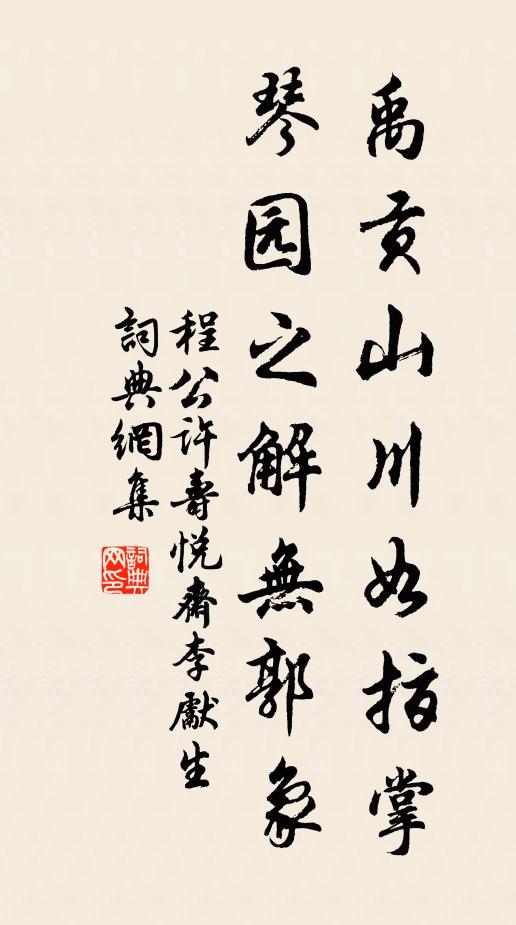 禹贡山川如指掌
琴园之解無郭象
程公許壽悦齋李獻生
詞典網集
詞典网印